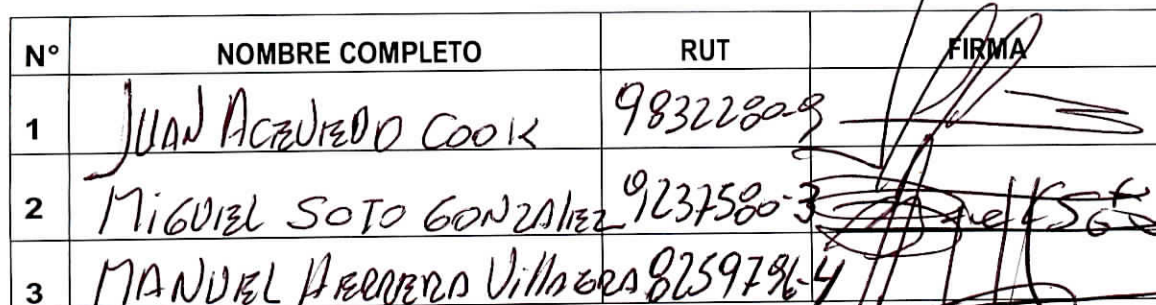 N° NOMBRE COMPLETO RUT FIRMA
1 JUAN ACEVEDO COOK 9832280-9
2 MiGUEL SOTO GONZALEZ 9237580-3
3 MANUEL HERRERA VillAGRA 8259796-4